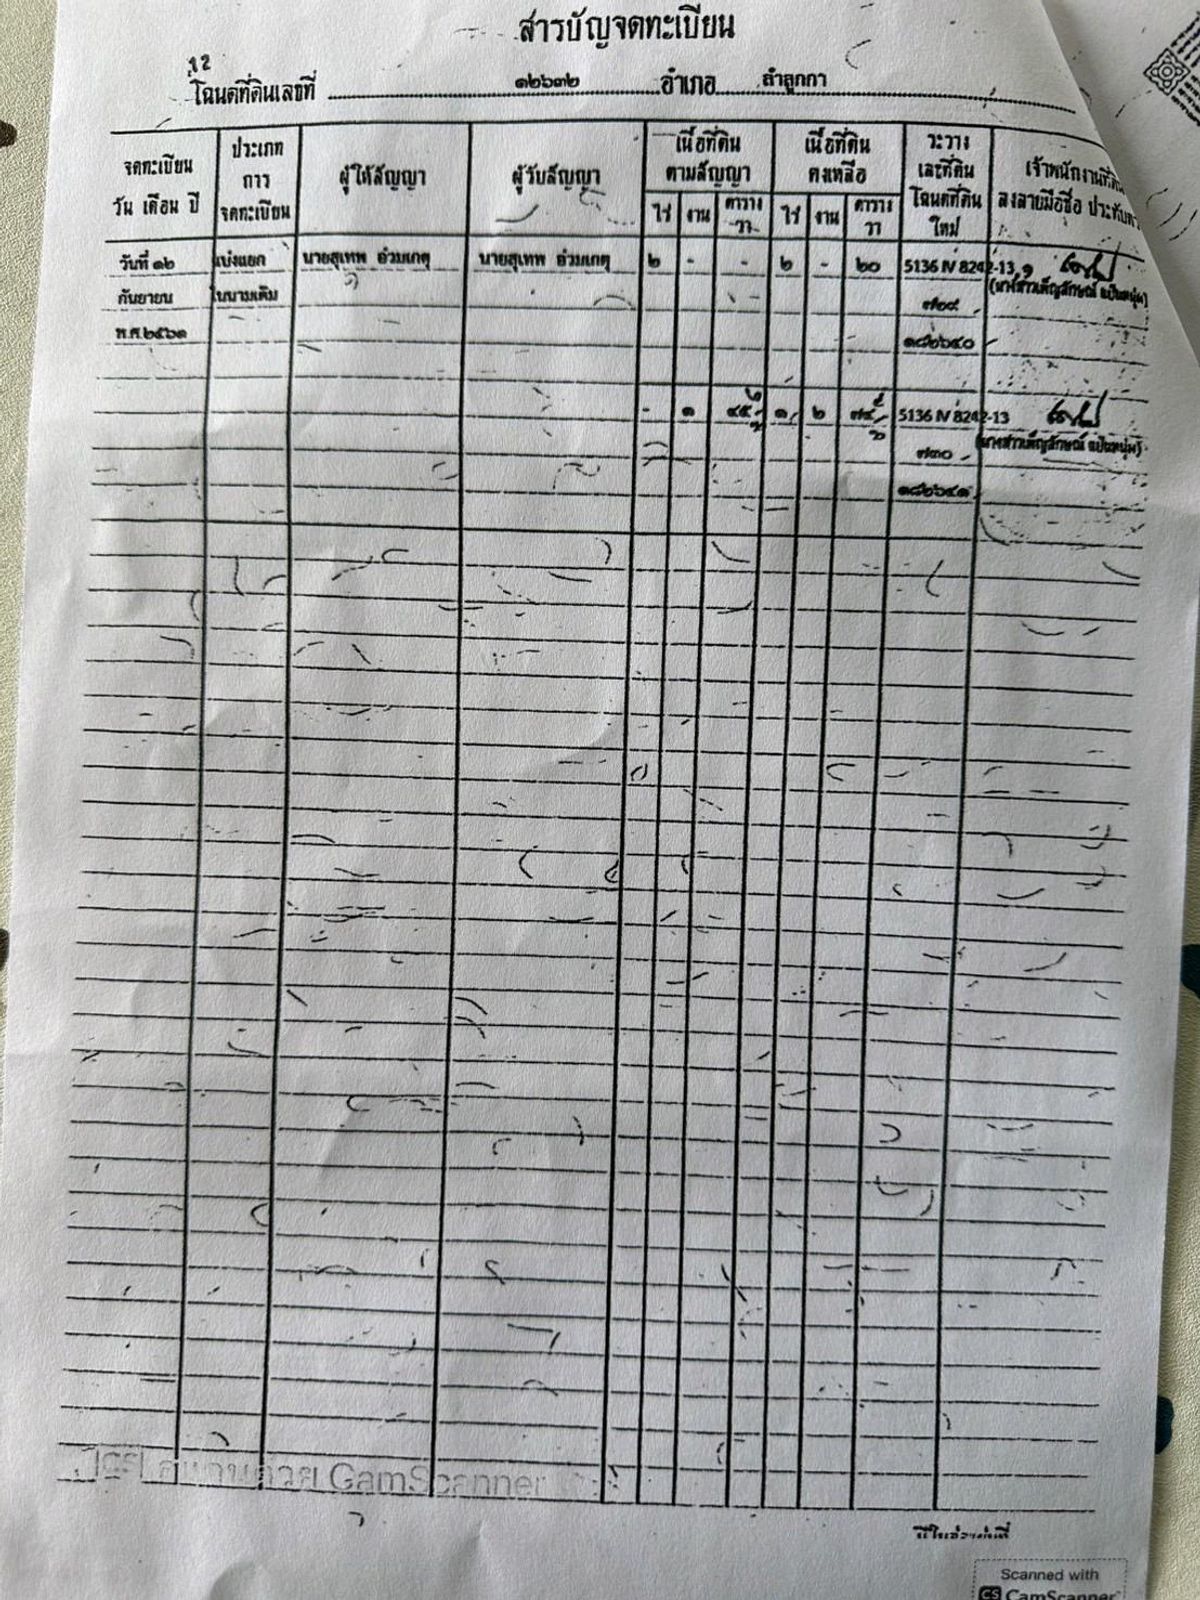 สารบัญจดทะเบียน
12
โฉนดที่ดินเลขที่ ๑๒๖๓๒ อำเภอ ลำลูกกา
จดทะเบียน วัน เดือน ปี
ประเภท การ จดทะเบียน
ผู้ให้สัญญา
ผู้รับสัญญา
เนื้อที่ดิน ตามสัญญา
ไร่ งาน ตาราง วา
เนื้อที่ดิน คงเหลือ
ไร่ งาน ตาราง วา
ระวาง เลขที่ดิน โฉนดที่ดิน ใหม่
เจ้าพนักงานที่ดิน ลงลายมือชื่อ ประทับ
วันที่ ๑๒ แบ่งแยก นายสุเทพ อ่วมเกตุ นายสุเทพ อ่วมเกตุ ๒ - - ๒ - ๒๐ 5136 IV 8242-13
กันยายน ในนามเดิม ๗๐๙
พ.ศ.๒๕๖๑ ๑๘๒๖๔๐
- ๑ ๔๕ ๑ ๒ ๗๕ 5136 IV 8242-13
๗๓๐
๑๘๒๖๔๑
CS สแกนด้วย CamScanner
Scanned with
CS CamScanner